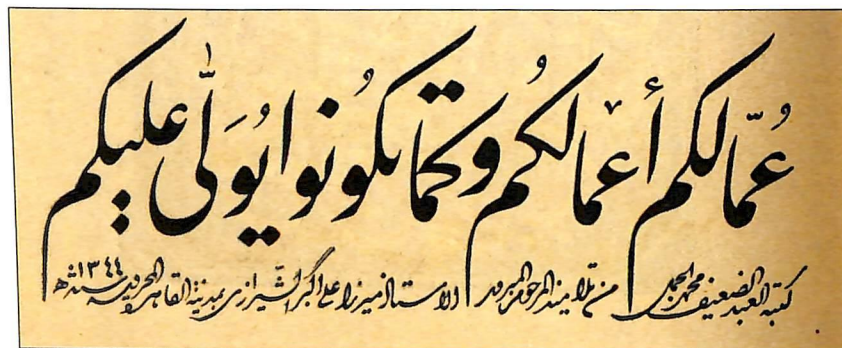 عُمّالكم أعمالكُم وكما تكُونُوا يُوَلَّى عليكم
كتبه العبد الضعيف محمد الجمل من تلاميذ المرحوم المبرور الاستاذ ميرزا على اكبر الشيرازى بمدينة القاهرة المحروسه سنة ١٣٤٤ ه